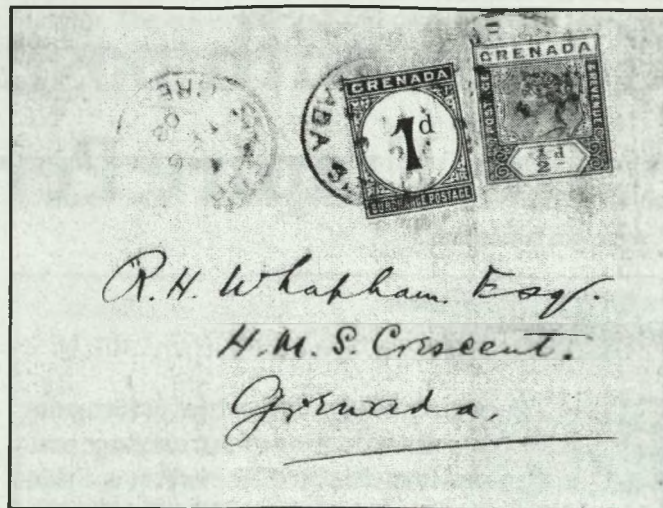 GRENADA
1d
SURCHARGE POSTAGE
GRENADA
POSTAGE
REVENUE
½d
R.H. Whapham Esq.
H.M.S. Crescent.
Grenada.